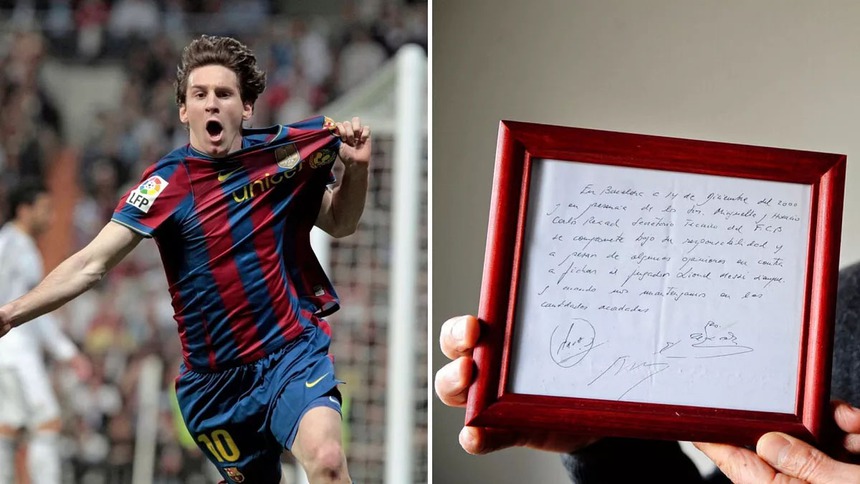 LFP
unicef
10
En Barcelona a 14 de diciembre del 2000
y en presencia de los Srs. Minguella y Horacio
Carlos Rexach Secretario Técnico del F.C.B
se compromete bajo su responsabilidad y
a pesar de algunas opiniones en contra
a fichar al jugador Lionel Messi siempre
y cuando nos mantengamos en las
cantidades acordadas